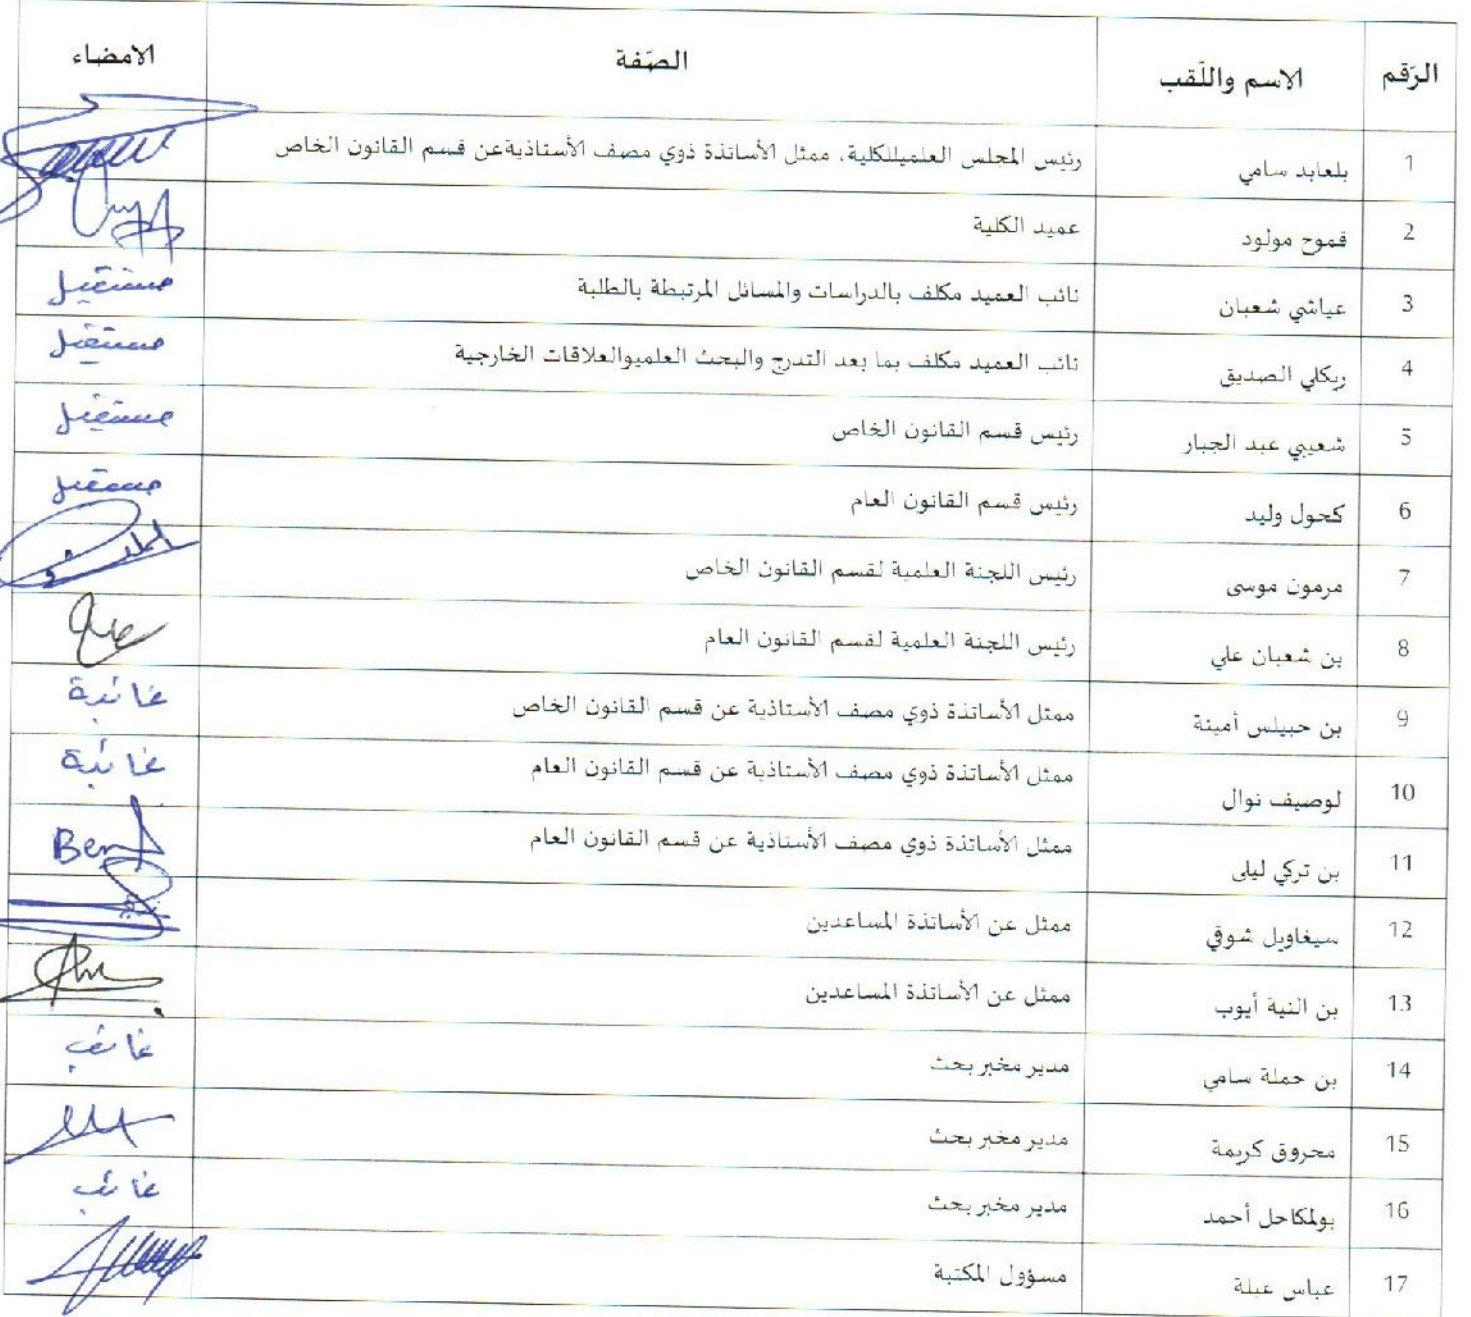 الرّقم الاسم واللّقب الصّفة الامضاء
1 بلعابد سامي رئيس المجلس العلميللكلية، ممثل الأساتذة ذوي مصف الأستاذيةعن قسم القانون الخاص
2 قموح مولود عميد الكلية
3 عياشي شعبان نائب العميد مكلف بالدراسات والمسائل المرتبطة بالطلبة مستقيل
4 ريكلي الصديق نائب العميد مكلف بما بعد التدرج والبحث العلميوالعلاقات الخارجية مستقيل
5 شعيبي عبد الجبار رئيس قسم القانون الخاص مستقيل
6 كحول وليد رئيس قسم القانون العام مستقيل
7 مرمون موسى رئيس اللجنة العلمية لقسم القانون الخاص
8 بن شعبان علي رئيس اللجنة العلمية لقسم القانون العام
9 بن حبيلس أمينة ممثل الأساتذة ذوي مصف الأستاذية عن قسم القانون الخاص غائبة
10 لوصيف نوال ممثل الأساتذة ذوي مصف الأستاذية عن قسم القانون العام غائبة
11 بن تركي ليلى ممثل الأساتذة ذوي مصف الأستاذية عن قسم القانون العام Ben
12 سيغاويل شوقي ممثل عن الأساتذة المساعدين
13 بن النية أيوب ممثل عن الأساتذة المساعدين
14 بن حملة سامي مدير مخبر بحث غائب
15 محروق كريمة مدير مخبر بحث
16 بولمكاحل أحمد مدير مخبر بحث غائب
17 عباس عبلة مسؤول المكتبة